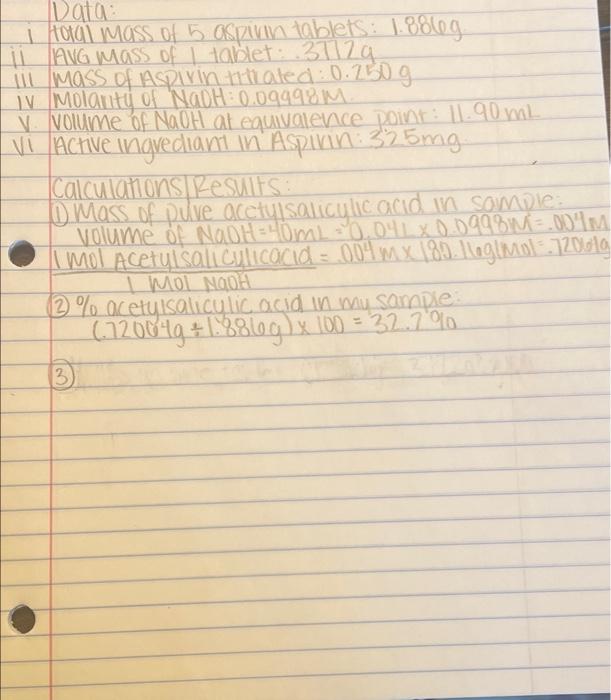 Data:
i total mass of 5 aspirin tablets: 1.886g
ii AVG mass of 1 tablet: .3772g
iii mass of Aspirin titrated: 0.250g
iv Molarity of NaOH: 0.09998M
V. Volume of NaOH at equivalence point: 11.90mL
Vi Active ingrediant in Aspirin: 325mg
Calculations/Results:
① Mass of pure acetylsalicylic acid in sample:
volume of NaOH = 40mL = 0.04L x 0.0998M = .004M
1 mol Acetylsalicylicacid = .004m x 180.16g/mol = .72064g
1 mol NaOH
② % acetylsalicylic acid in my sample:
(.72064g ÷ 1.886g) x 100 = 32.7%
③